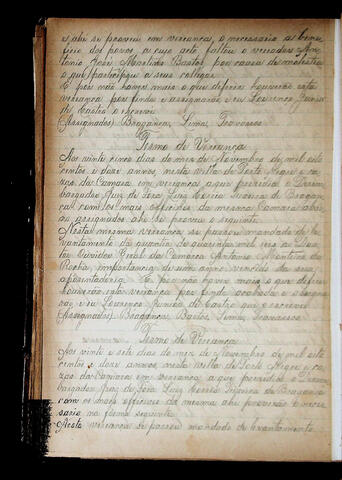 e ahi se proveu em vereança, o necessario ao bene-
ficio dos povos, a cujo acto faltou o vereador An-
tonio José Martins Bastos por causa de molestia
o que participou a seus collegas.
E por não haver mais o que deferir houverão esta
vereança por finda e assignarão e eu Lourenço Junior
de Castro o escrevi
(Assignados) Bragança, Lima, Travassos
Termo de Vereança
Aos vinte cinco dias do mez de Novembro de mil oito
centos e doze annos nesta villa de Porto Alegre e ca-
zas da Camara em vereança a que presidio o Dezem-
bargador Juiz de Fóra Luiz Corrêa Teixeira de Bragan-
ça com os mais officiaes da mesma Camara abai-
xo assignados ahi se proveu o seguinte.
Nesta mesma vereança se passou mandado de le-
vantamento da quantia de quarenta mil reis ao Dou-
tor Ouvidor Geral da Comarca Antonio Monteiro da
Rocha, importancia de um anno vencido da sua
aposentadoria. E por não haver mais o que deferir
houverão esta vereança por finda acabada e assigna-
rão, e eu Lourenço Junior de Castro que o escrevi
(Assignados) Bragança, Bastos, Lima, Travassos
Termo de Vereança
Aos vinte e sete dias do mez de Novembro de mil oito
centos e doze annos nesta villa de Porto Alegre e ca-
zas da Camara em vereança a que presidio o Dezem-
bargador Juiz de Fóra Luiz Corrêa Teixeira de Bragança
com os mais officiaes da mesma ahi proverão o neces-
sario na forma seguinte.
Nesta vereança se passou mandado de levantamento